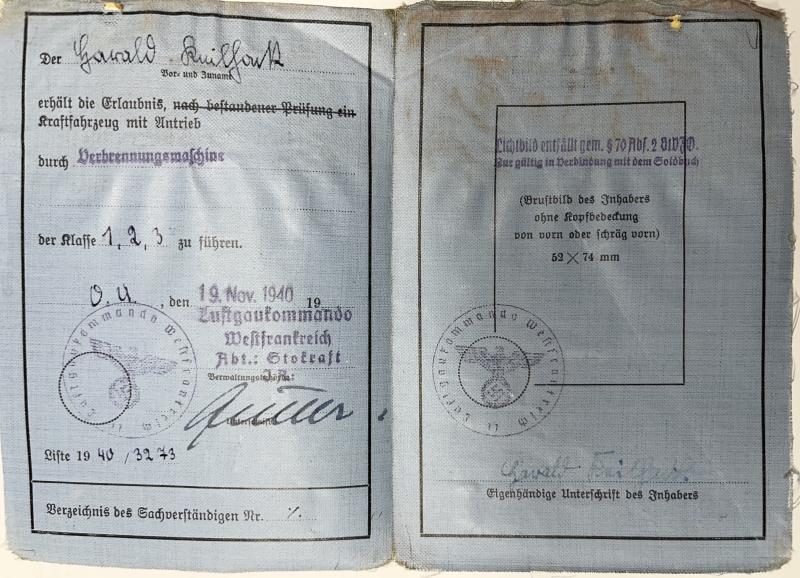 Der Harald Keilhack
Vor- und Zuname
erhält die Erlaubnis, nach bestandener Prüfung ein
Kraftfahrzeug mit Antrieb
durch Verbrennungsmaschine
der Klasse 1, 2, 3 zu führen.
O. U. , den 19. Nov. 1940 19
Luftgaukommando
Westfrankreich
Abt.: Stokraft
J. A.:
Luftgaukommando Westfrankreich
Liste 19 40 / 3273
Verzeichnis des Sachverständigen Nr. ٪
Lichtbild entfällt gem. § 70 Abs. 2 StVZO.
Nur gültig in Verbindung mit dem Soldbuch
(Brustbild des Inhabers
ohne Kopfbedeckung
von vorn oder schräg vorn)
52 × 74 mm
Luftgaukommando Westfrankreich
Harald Keilhack
Eigenhändige Unterschrift des Inhabers